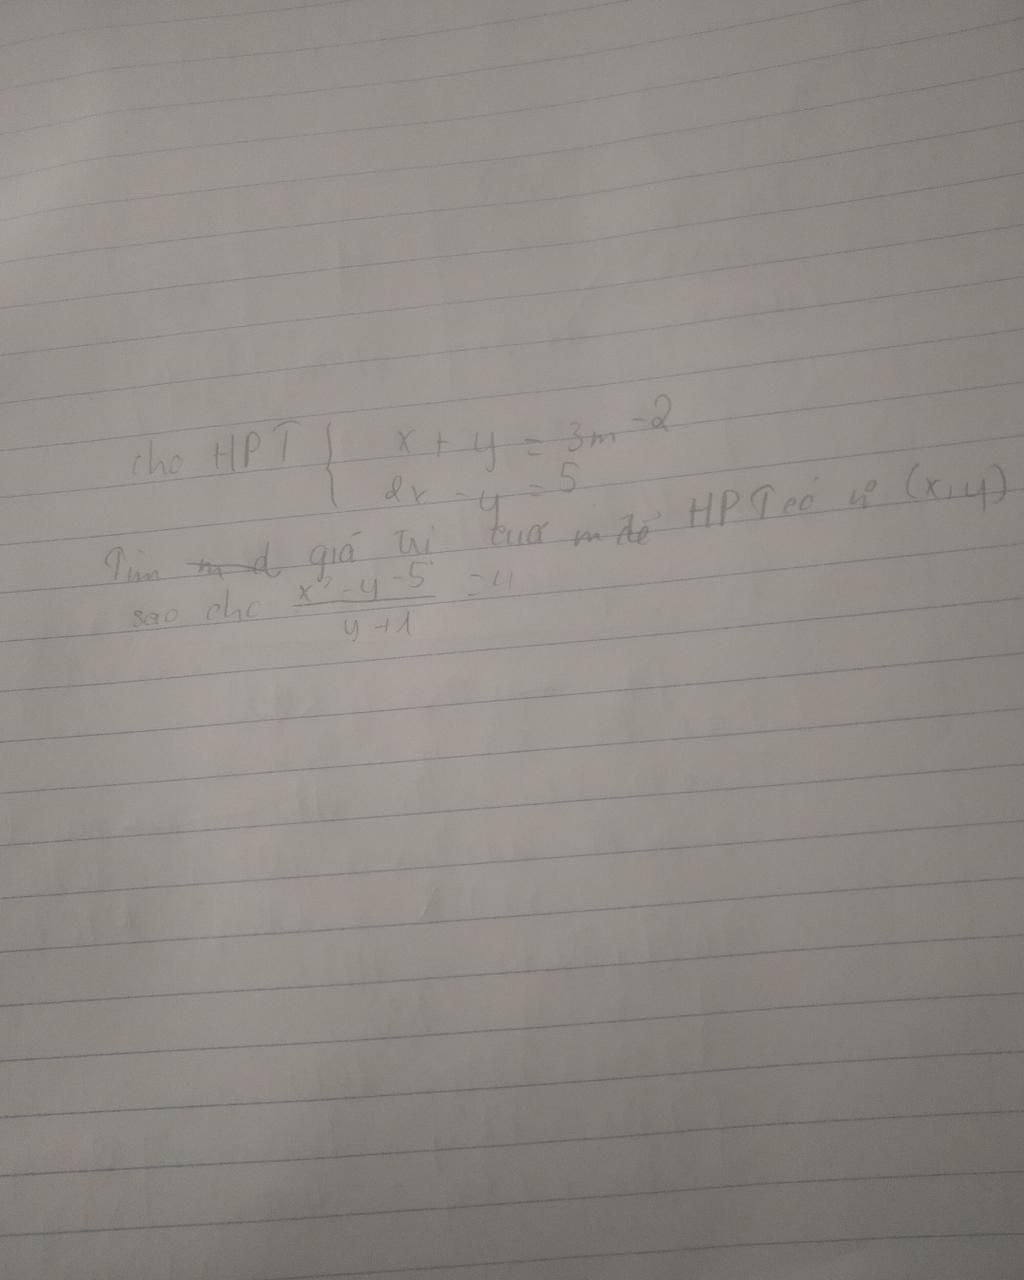 cho HPT { x + y = 3m - 2
2x - y = 5
Tìm giá trị của m để HPT có n° (x, y)
sao cho x² - y - 5 / y + 1 = 4